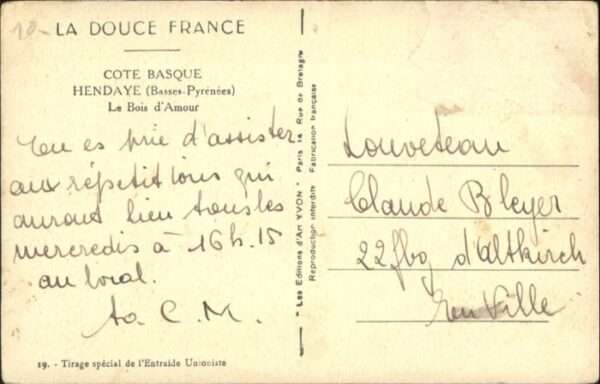 10-
LA DOUCE FRANCE
COTE BASQUE
HENDAYE (Basses-Pyrénées)
Le Bois d'Amour
Tu es prié d'assister
aux répétitions qui
auront lieu tous les
mercredis à 16h.15
au local.
ta C. M.
19. - Tirage spécial de l'Entraide Unioniste
"Les Editions d'Art YVON" Paris 14 Rue de Bretagne
Reproduction interdite Fabrication française
Louveteau
Claude Bleyer
22 fbg d'altkirch
En Ville